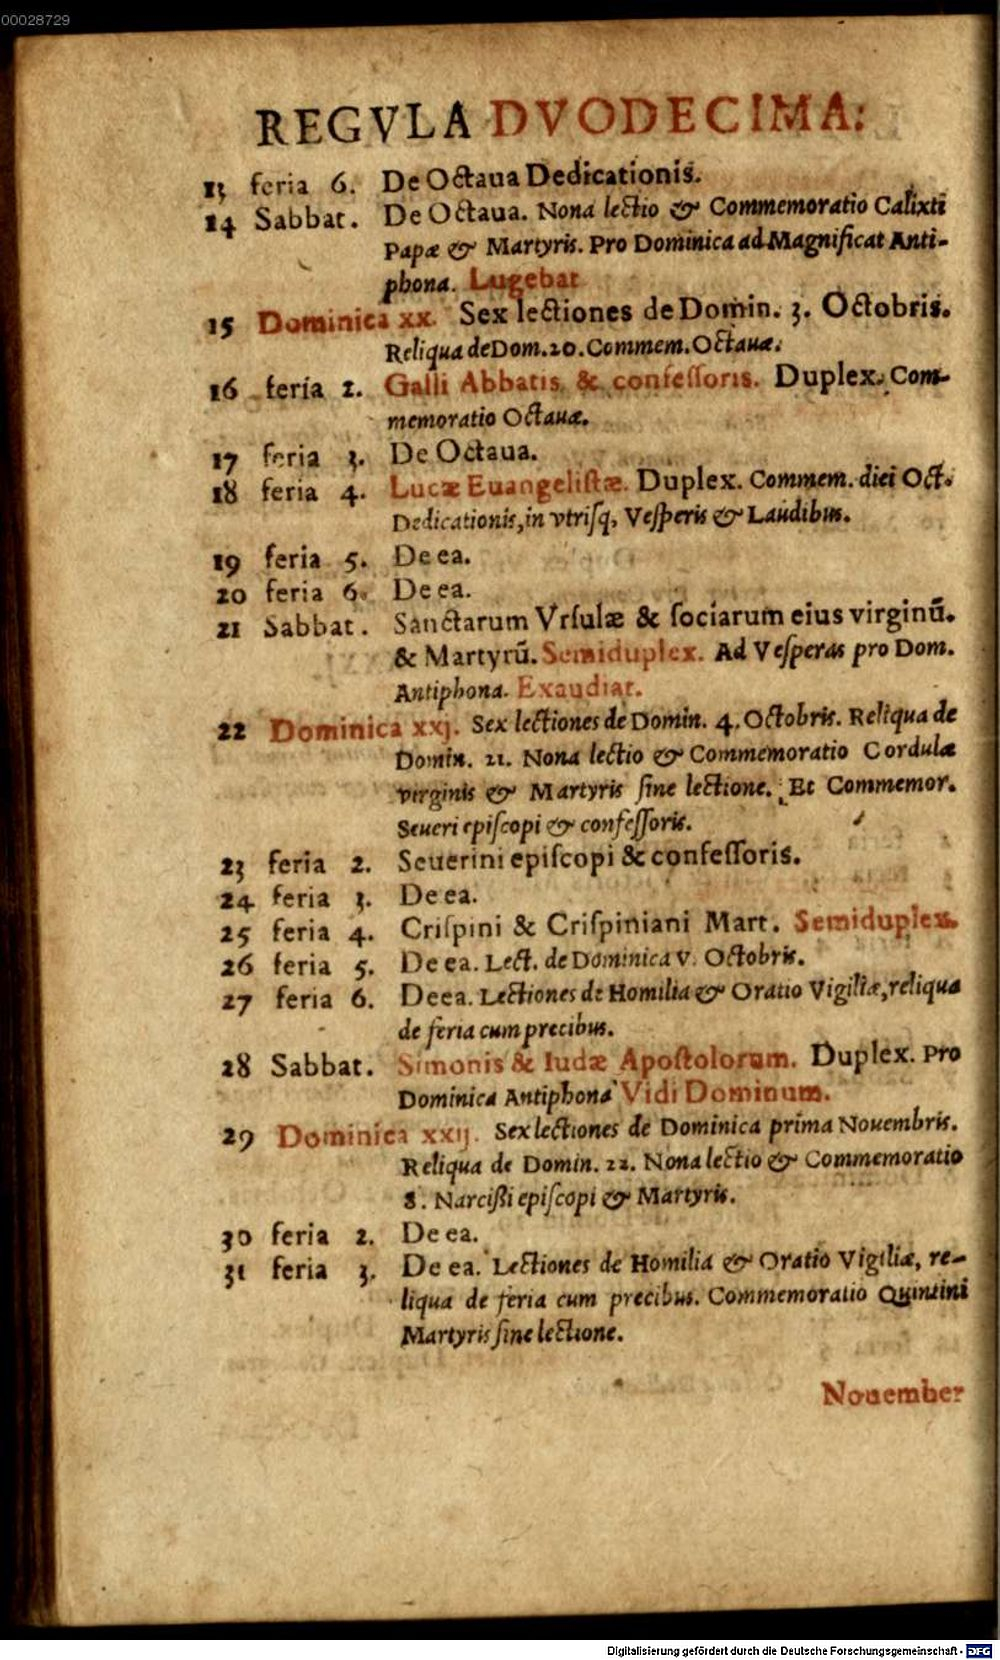 00028729
REGVLA DVODECIMA:
13 feria 6. De Octaua Dedicationis.
14 Sabbat. De Octaua. Nona lectio & Commemoratio Calixti
Papæ & Martyris. Pro Dominica ad Magnificat Anti-
phona. Lugebat
15 Dominica xx. Sex lectiones de Domin. 3. Octobris.
Reliqua de Dom. 20. Commem. Octauæ.
16 feria 2. Galli Abbatis & confessoris. Duplex. Com-
memoratio Octauæ.
17 feria 3. De Octaua.
18 feria 4. Lucæ Euangelistæ. Duplex. Commem. diei Oct.
Dedicationis, in vtrisq, Vesperis & Laudibus.
19 feria 5. De ea.
20 feria 6. De ea.
21 Sabbat. Sanctarum Vrsulæ & sociarum eius virginū.
& Martyrū. Semiduplex. Ad Vesperas pro Dom.
Antiphona. Exaudiat.
22 Dominica xxj. Sex lectiones de Domin. 4. Octobris. Reliqua de
Domin. 21. Nona lectio & Commemoratio Cordulæ
virginis & Martyris sine lectione. Et Commemor.
Seueri episcopi & confessoris.
23 feria 2. Seuerini episcopi & confessoris.
24 feria 3. De ea.
25 feria 4. Crispini & Crispiniani Mart. Semiduplex.
26 feria 5. De ea. Lect. de Dominica V. Octobris.
27 feria 6. De ea. Lectiones de Homilia & Oratio Vigiliæ, reliqua
de feria cum precibus.
28 Sabbat. Simonis & Iudæ Apostolorum. Duplex. Pro
Dominica Antiphona Vidi Dominum.
29 Dominica xxij. Sex lectiones de Dominica prima Nouembris.
Reliqua de Domin. 22. Nona lectio & Commemoratio
S. Narcissi episcopi & Martyris.
30 feria 2. De ea.
31 feria 3. De ea. Lectiones de Homilia & Oratio Vigiliæ, re-
liqua de feria cum precibus. Commemoratio Quintini
Martyris sine lectione.
Nouember
Digitalisierung gefördert durch die Deutsche Forschungsgemeinschaft - DFG